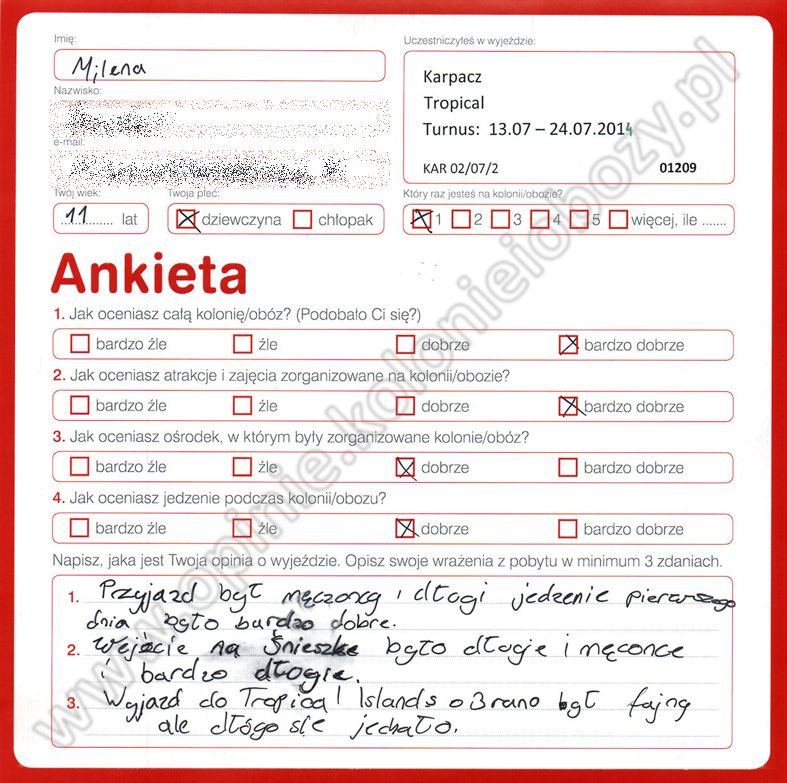 Imię:
Milena
Nazwisko:
e-mail:
Twój wiek:
11 lat
Twoja płeć:
dziewczyna chłopak
Uczestniczyłeś w wyjeździe:
Karpacz
Tropical
Turnus: 13.07 – 24.07.2014
KAR 02/07/2 01209
Który raz jesteś na kolonii/obozie?
1 2 3 4 5 więcej, ile .......
Ankieta
1. Jak oceniasz całą kolonię/obóz? (Podobało Ci się?)
bardzo źle źle dobrze bardzo dobrze
2. Jak oceniasz atrakcje i zajęcia zorganizowane na kolonii/obozie?
bardzo źle źle dobrze bardzo dobrze
3. Jak oceniasz ośrodek, w którym były zorganizowane kolonie/obóz?
bardzo źle źle dobrze bardzo dobrze
4. Jak oceniasz jedzenie podczas kolonii/obozu?
bardzo źle źle dobrze bardzo dobrze
Napisz, jaka jest Twoja opinia o wyjeździe. Opisz swoje wrażenia z pobytu w minimum 3 zdaniach.
1. Przyjazd był męczoncy i dłogi jedzenie pierwszego
dnia było bardzo dobre.
2. Wejście na Śnieszke było dłogie i męconce
i bardzo dłogie.
3. Wyjazd do Tropical Islands o 3 rano był fajny
ale dłógo sie jechało.
www.opinie.kolonieiobozy.pl